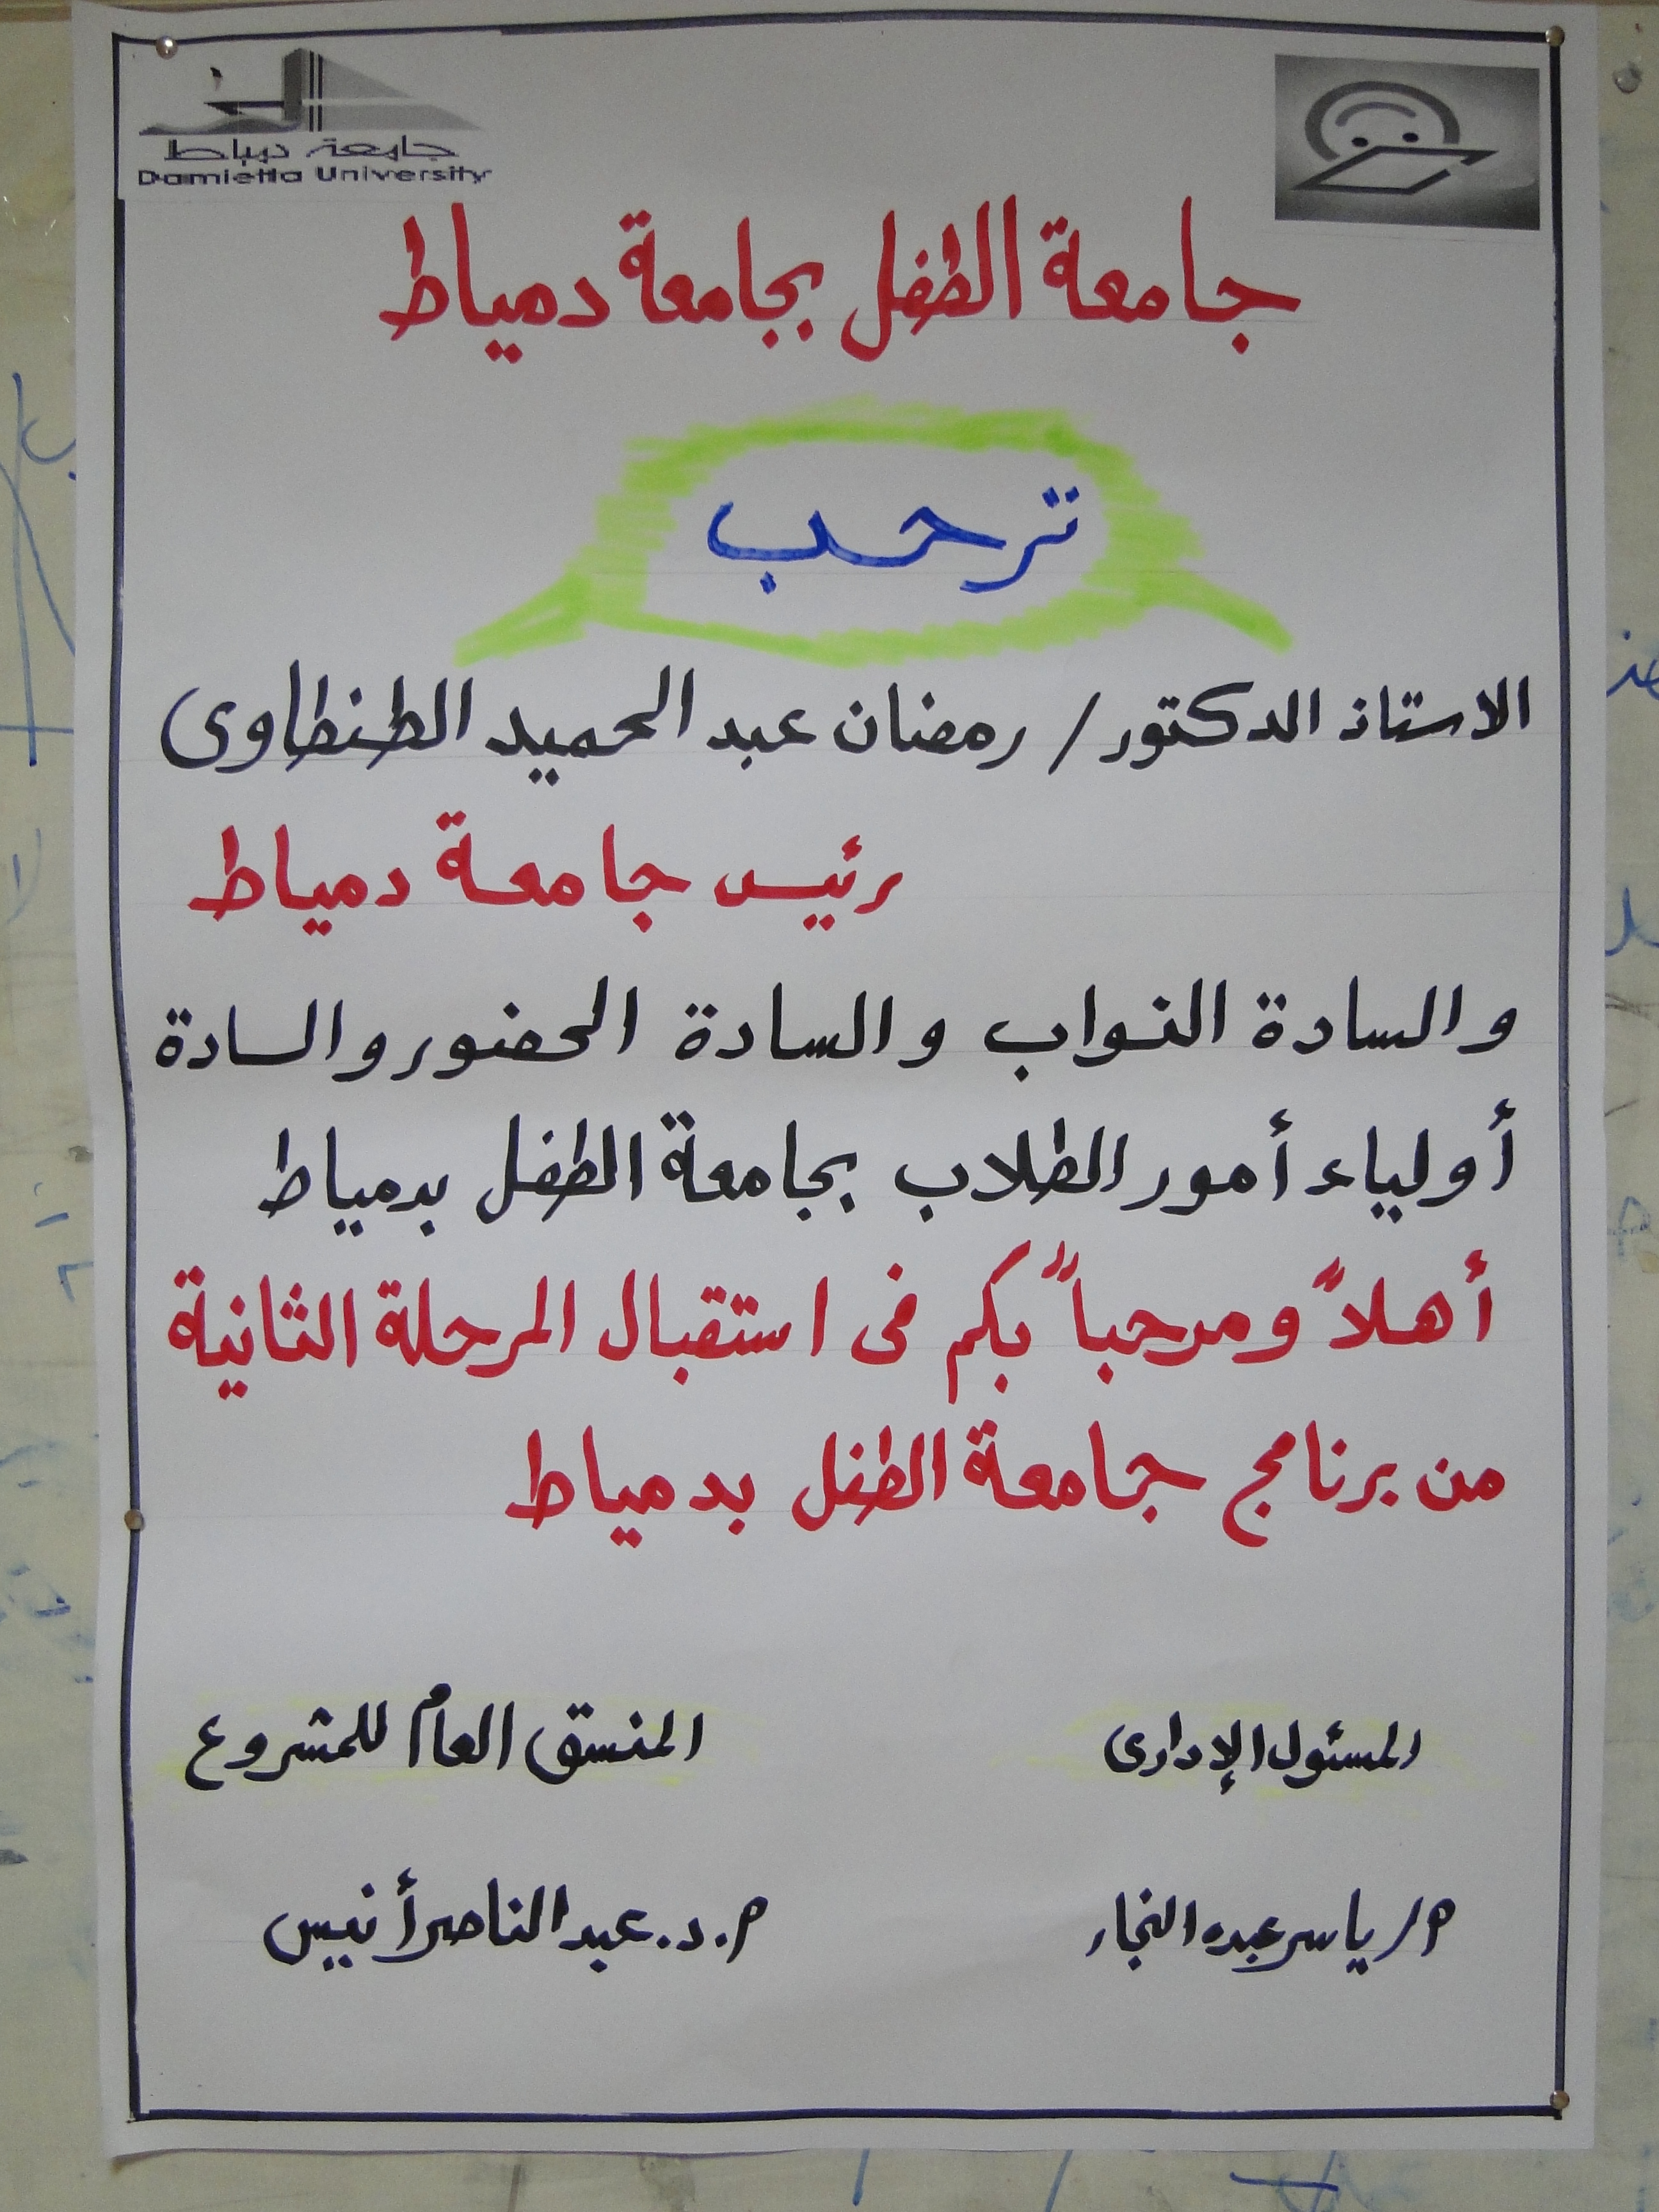 جامعة دمياط
Damietta University
جامعة الطفل بجامعة دمياط
ترحب
الاستاذ الدكتور / رمضان عبد الحميد الطنطاوى
رئيس جامعة دمياط
والسادة النواب والسادة الحضور والسادة
أولياء أمور الطلاب بجامعة الطفل بدمياط
أهلاً ومرحباً بكم فى استقبال المرحلة الثانية
من برنامج جامعة الطفل بدمياط
المسئول الإدارى
المنسق العام للمشروع
م/ ياسر عبده النجار
م.د. عبد الناصر أنيس